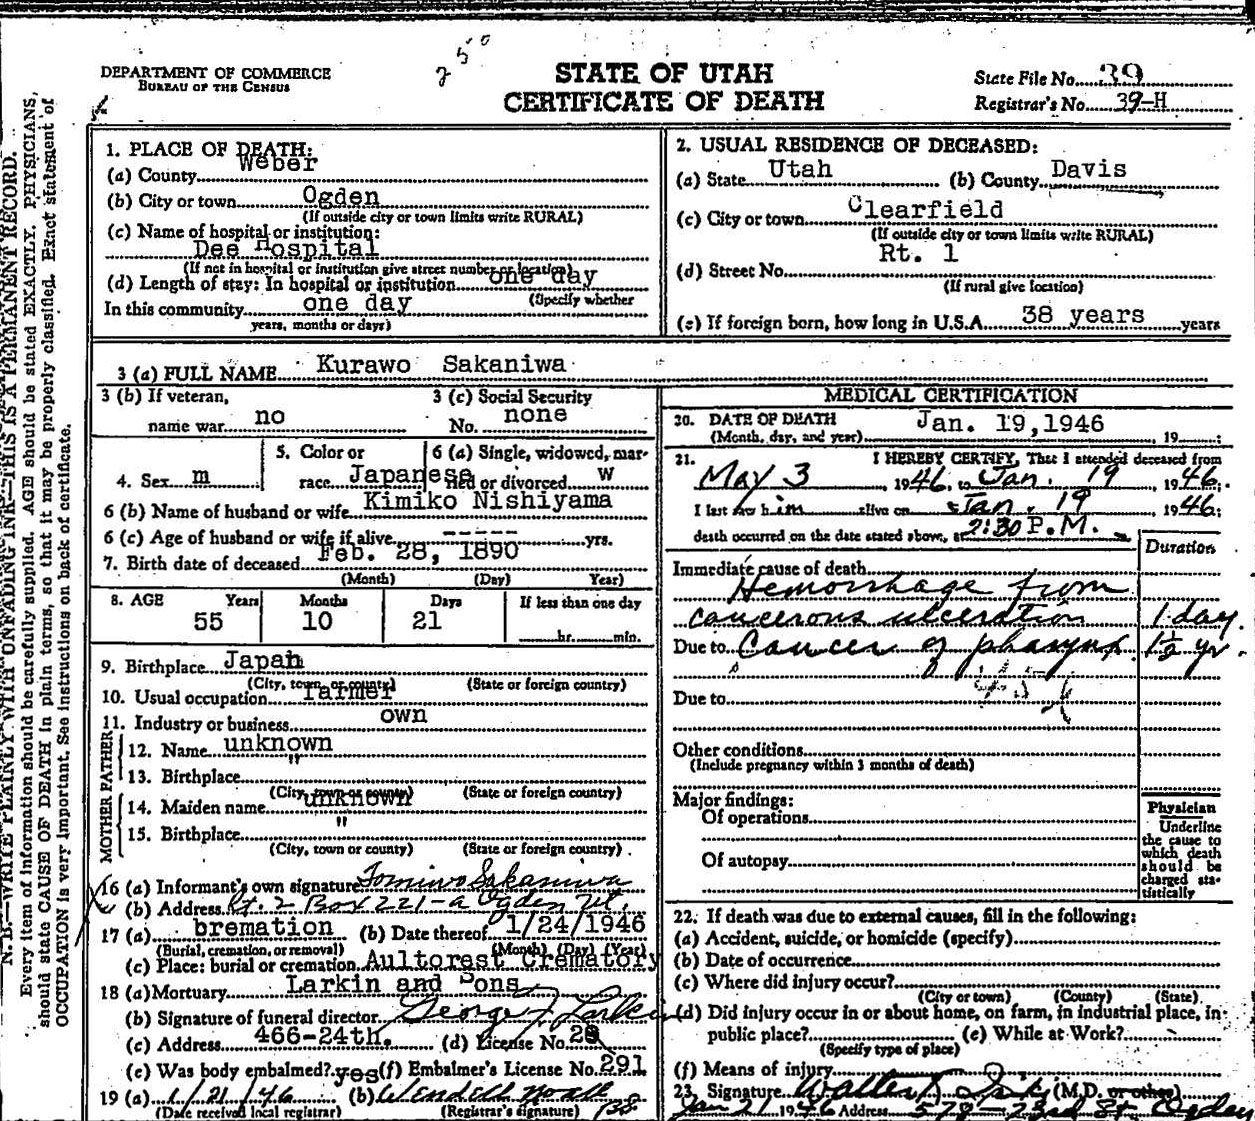 25⁰
DEPARTMENT OF COMMERCE
BUREAU OF THE CENSUS
STATE OF UTAH
CERTIFICATE OF DEATH
State File No. 39
Registrar's No. 39-H
N. B.—WRITE PLAINLY WITH UNFADING INK—THIS IS A PERMANENT RECORD.
Every item of information should be carefully supplied. AGE should be stated EXACTLY. PHYSICIANS,
should state CAUSE OF DEATH in plain terms, so that it may be properly classified. Exact statement of
OCCUPATION is very important. See instructions on back of certificate.
1. PLACE OF DEATH:
(a) County Weber
(b) City or town Ogden
(If outside city or town limits write RURAL)
(c) Name of hospital or institution:
Dee Hospital
(If not in hospital or institution give street number or location)
(d) Length of stay: In hospital or institution one day
(Specify whether
In this community one day
years, months or days)
2. USUAL RESIDENCE OF DECEASED:
(a) State Utah (b) County Davis
(c) City or town Clearfield
(If outside city or town limits write RURAL)
(d) Street No. Rt. 1
(If rural give location)
(e) If foreign born, how long in U.S.A. 38 years years
3 (a) FULL NAME Kurawo Sakaniwa
3 (b) If veteran, name war no
3 (c) Social Security No. none
4. Sex m
5. Color or race Japanese
6 (a) Single, widowed, married or divorced W
6 (b) Name of husband or wife Kimiko Nishiyama
6 (c) Age of husband or wife if alive ----- yrs.
7. Birth date of deceased Feb. 28, 1890
(Month) (Day) Year)
8. AGE Years Months Days If less than one day
55 10 21 hr. min.
9. Birthplace Japan
(City, town, or county) (State or foreign country)
10. Usual occupation farmer
11. Industry or business own
FATHER
12. Name unknown
13. Birthplace "
(City, town or county) (State or foreign country)
MOTHER
14. Maiden name unknown
15. Birthplace "
(City, town or county) (State or foreign country)
16 (a) Informant's own signature Tomiwo Sakaniwa
(b) Address Rt. 2 Box 221-a Ogden Ut.
17 (a) bremation (b) Date thereof 1/24/1946
(Burial, cremation, or removal) (Month) (Day) (Year)
(c) Place: burial or cremation Aultorest Crematory
18 (a) Mortuary Larkin and Sons
(b) Signature of funeral director George J Larkin
(c) Address 466-24th. (d) License No. 28
(e) Was body embalmed? yes (f) Embalmer's License No. 291
19 (a) 1/21/46 (b) Wendell
(Date received local registrar) (Registrar's signature)
MEDICAL CERTIFICATION
20. DATE OF DEATH Jan. 19,1946
(Month, day, and year) , 19 ;
21. I HEREBY CERTIFY, That I attended deceased from
May 3, 1946, to Jan. 19 1946.
I last saw him alive on Jan. 19 1946;
death occurred on the date stated above, at 2:30 P.M.
Duration
Immediate cause of death
Hemorrhage from
cancerous ulceration 1 day.
Due to Cancer of pharynx 1½ yr.
Due to
Other conditions
(Include pregnancy within 3 months of death)
Major findings:
Of operations
Of autopsy
Physician
Underline
the cause to
which death
should be
charged sta-
tistically
22. If death was due to external causes, fill in the following:
(a) Accident, suicide, or homicide (specify)
(b) Date of occurrence
(c) Where did injury occur?
(City or town) (County) (State)
(d) Did injury occur in or about home, on farm, in industrial place, in
public place? (e) While at Work?
(Specify type of place)
(f) Means of injury
23. Signature Walter (M.D. or other)
Jan 21 1946 Address 578-23rd St. Ogden